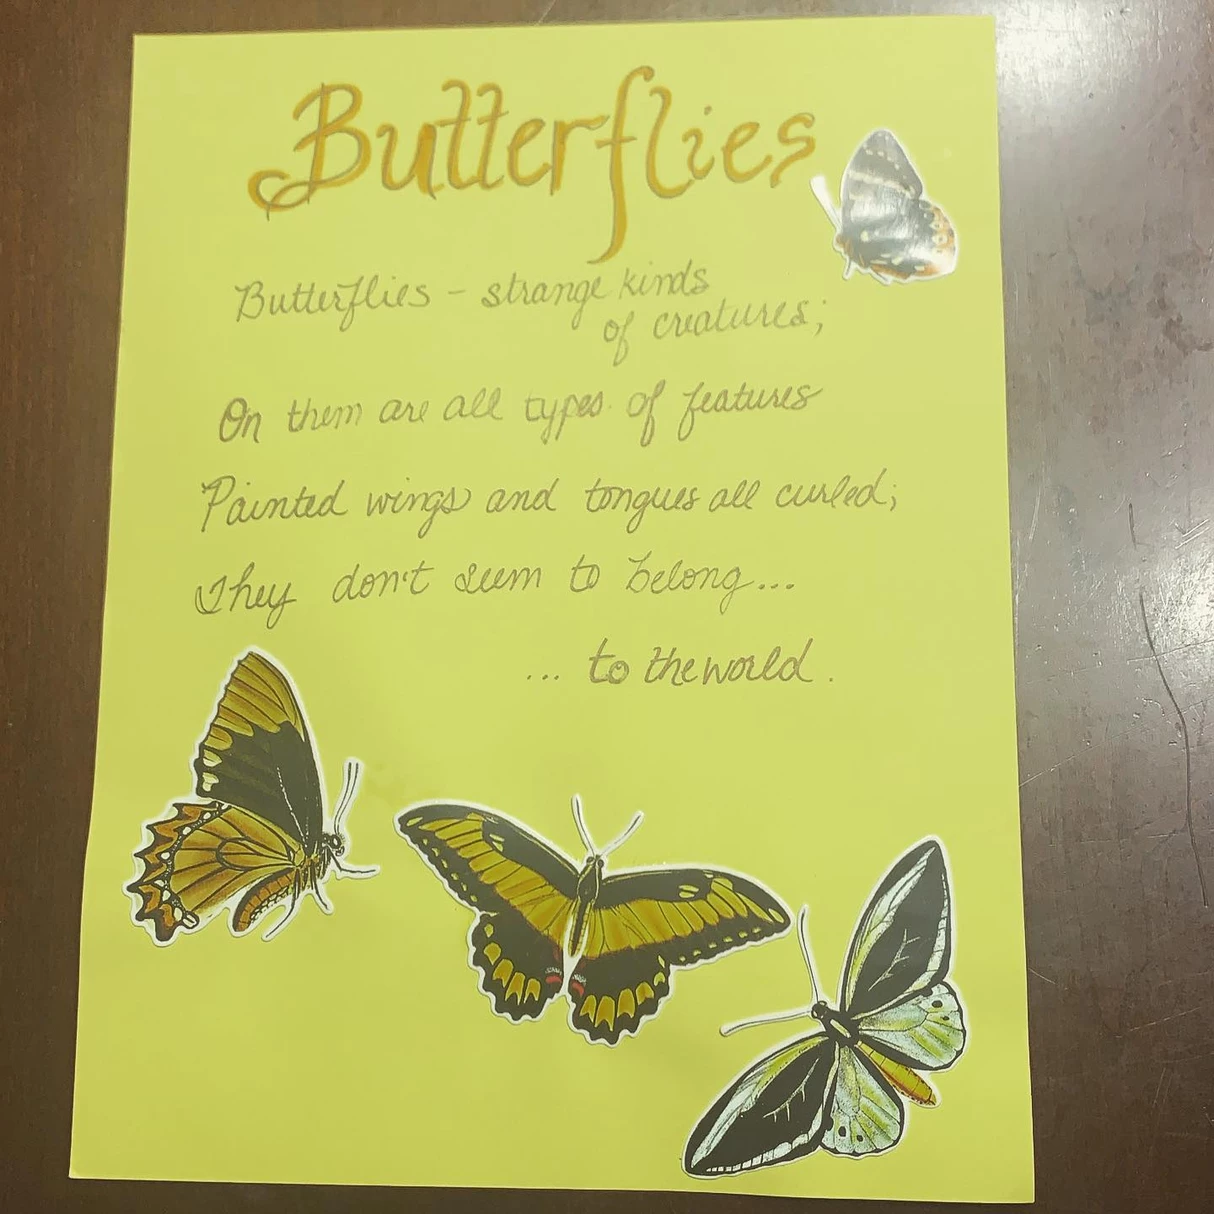 Butterflies
Butterflies - strange kinds
of creatures;
On them are all types of features
Painted wings and tongues all curled;
They don't seem to belong...
... to the world.